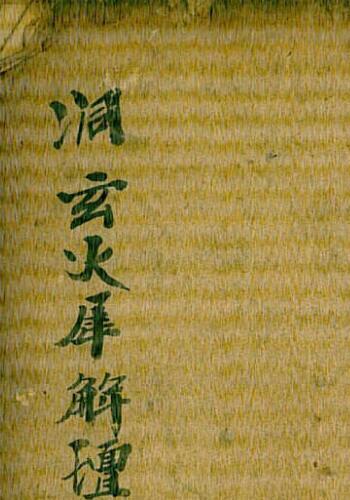 洞玄火犀解壇